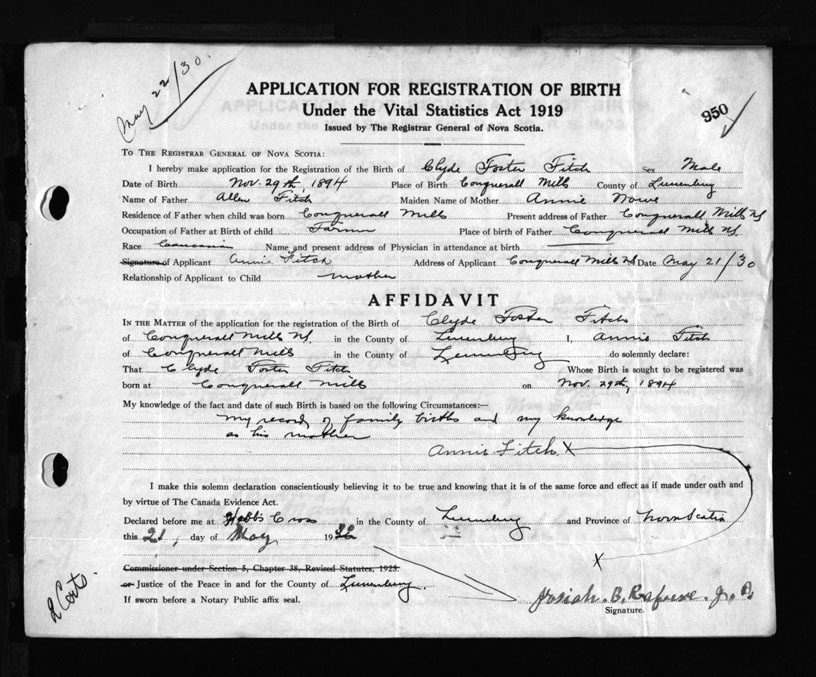 May 22/30.
APPLICATION FOR REGISTRATION OF BIRTH
Under the Vital Statistics Act 1919
950
Issued by The Registrar General of Nova Scotia.
TO THE REGISTRAR GENERAL OF NOVA SCOTIA:
I hereby make application for the Registration of the Birth of Clyde Foster Fitch Sex Male
Date of Birth Nov. 29th, 1894 Place of Birth Conquerall Mills County of Lunenburg
Name of Father Allen Fitch Maiden Name of Mother Annie Nowe
Residence of Father when child was born Conquerall Mills Present address of Father Conquerall Mills NS
Occupation of Father at Birth of child Farmer Place of birth of Father Conquerall Mills NS.
Race Caucasian Name and present address of Physician in attendance at birth
Signature of Applicant Annie Fitch Address of Applicant Conquerall Mills NS Date May 21/30
Relationship of Applicant to Child mother
AFFIDAVIT
IN THE MATTER of the application for the registration of the Birth of Clyde Foster Fitch
of Conquerall Mills NS. in the County of Lunenburg I, Annie Fitch
of Conquerall Mills in the County of Lunenburg do solemnly declare:
That Clyde Foster Fitch Whose Birth is sought to be registered was
born at Conquerall Mills on Nov. 29th, 1894
My knowledge of the fact and date of such Birth is based on the following Circumstances:—
my record of family births and my knowledge
as his mother
Annie Fitch X
I make this solemn declaration conscientiously believing it to be true and knowing that it is of the same force and effect as if made under oath and
by virtue of The Canada Evidence Act.
Declared before me at Hebb's Cross in the County of Lunenburg and Province of Nova Scotia
this 21, day of May 1930
X
Commissioner under Section 5, Chapter 38, Revised Statutes, 1923.
or Justice of the Peace in and for the County of Lunenburg.
If sworn before a Notary Public affix seal.
Josiah. B. Rafuse. J. P.
Signature.